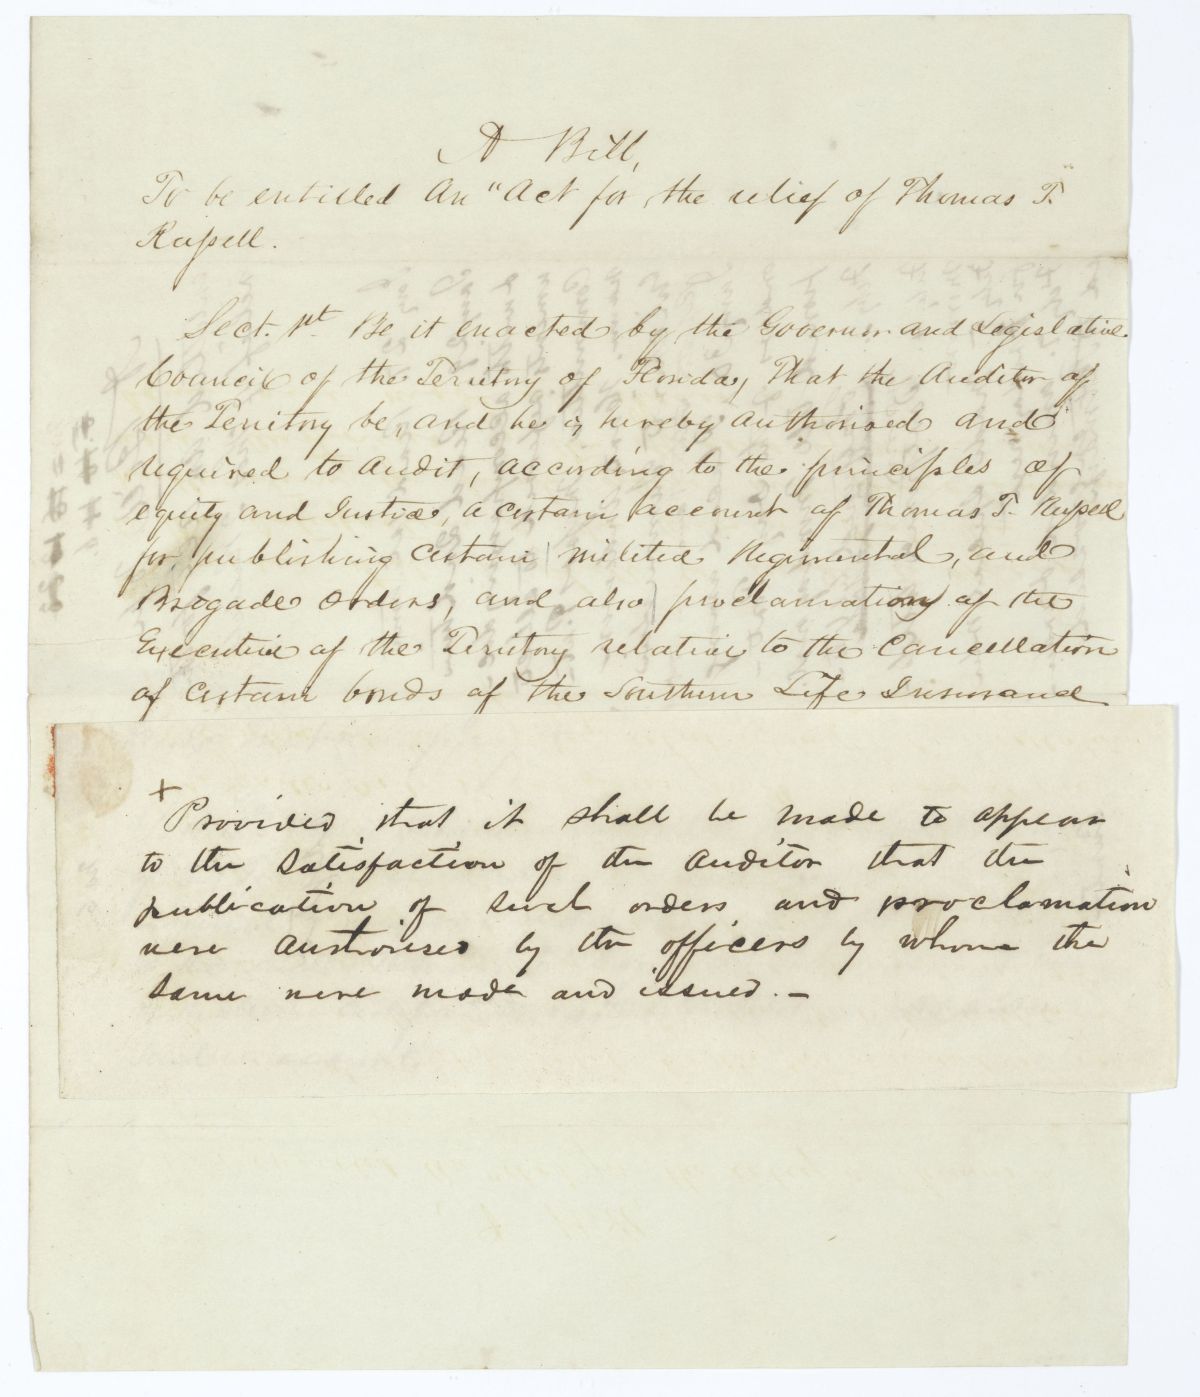 A Bill,
To be entitled An "Act for the relief of Thomas T."
Russell.
Sect. 1st Be it enacted by the Governor and Legislative
Council of the Territory of Florida, That the Auditor of
the Territory be, and he is hereby authorised and
required to audit, according to the principles of
equity and Justice, a certain account of Thomas T. Russell
for publishing certain militia Regimental, and
Brigade orders, and also proclamation of the
Executive of the Territory relative to the cancellation
of certain bonds of the Southern Life Insurance
+
Provided that it shall be made to appear
to the satisfaction of the auditor that the
publication of such orders and proclamation
were authorised by the officers by whom the
same were made and issued. –